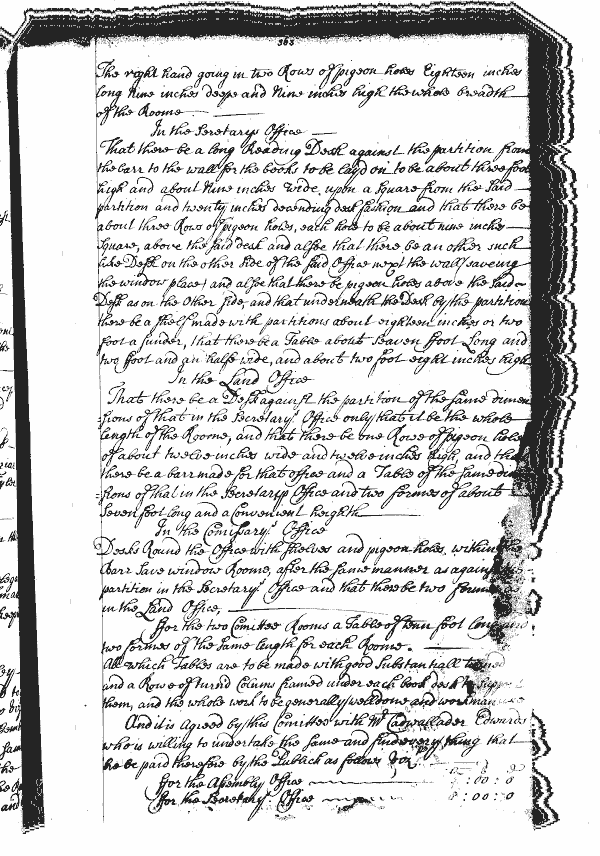 363
The right hand going in two Rows of pigeon holes Eighteen inches
long Nine inches deepe and Nine inches high the whole breadth
of the Roome
In the Secretarys Office
That there be a long Reading Desk against the partition from
the barr to the wall for the books to be layd on to be about three foot
high and about Nine inches wide, upon a Square from the Said
partition and twenty inches decending desk fashion and that there be
about three Rows of pigeon holes, each hole to be about nine inches
Square, above the said desk and allsoe that there be an other such
like Desk on the other side of the said Office next the wall (saveing
the window place) and alsoe that there be pigeon holes above the said
Desk as on the Other side, and that underneath the Desk by the partition
there be a shelf made with partitions about eighteen inches or two
foot a sunder, that there be a Table about Seaven ffoot Long and
two foot and an halfe wide, and about two foot eight inches high
In the Land Office
That there be a Desk against the partition of the same dimen
sions of that in the Secretarys Office only that it be the whole
length of the Roome, and that there be one Row of pigeon holes
of about twelve inches wide and twelve inches high, and that
there be a barr made for that office and a Table of the same dim
sions of that in the Secretarys Office and two formes of about
Seven foot long and a Convenient heighth
In the Comissarys Office
Desks Round the Office with shelves and pigeon holes, within the
Barr Save window Roome, after the same manner as against
partition in the Secretarys Office and that there be two formes
in the Land Office,
ffor the two Comittee Rooms a Table of tenn foot long and
two formes of the same length for each Roome.
All which Tables are to be made with good Substantiall turned
and a Row of turnd Colums framed under each book desk to support
them, and the whole work to be generally well done and workman
And it is Agreed by this Comittee with Mr Cadwallader Edwards
who is willing to undertake the same and find every thing that
he be paid therefore by the Publick as follows
ffor the Assembly Office
ffor the Secretarys Office :00:0